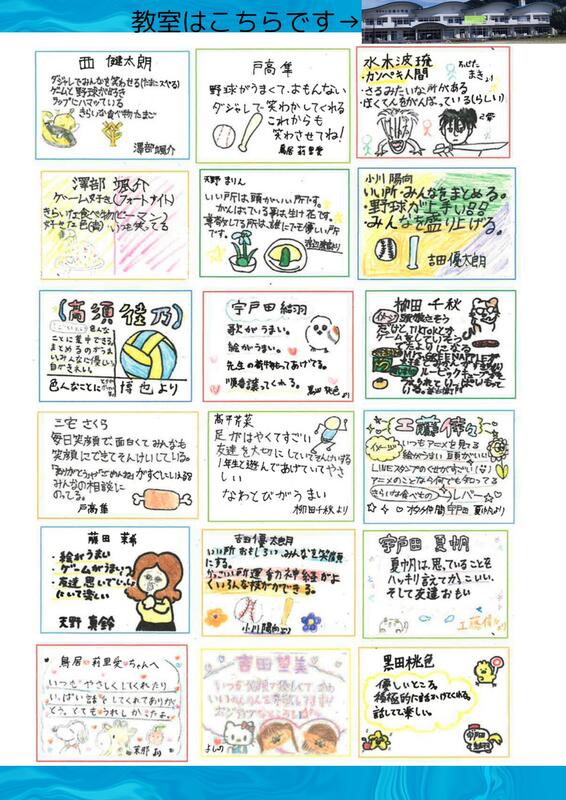 教室はこちらです→
西 健太朗
ダジャレでみんなを笑わせる(たまにスベる)
ゲームと野球が好き
ラップにハマッている
きらいな食べ物たまご
澤部颯介
戸高 隼
野球がうまくて、おもしろい
ダジャレで笑わかしてくれる
これからも
笑わさせてね!
鳥居 莉里愛
水木波琉
・カンペキ人間
・さるみたいな所がある
・ぼくてんをがんばっている(らしい)
澤部 颯介
ゲーム好き(フォートナイト)
きらいな食べ物(ピーマン)
好きな色(赤) いつも笑ってる
天野 まりん
いい所は頭がいい所です。
がんばっている事は生け花です。
尊敬してる所は、誰にでも優しい所
です。
小川 陽向
いい所・みんなをまとめる。
・野球が上手い
・みんなを盛り上げる。
吉田 優太朗
高須 佳乃
色んな
ことに集中できる
まとめるのがうま
い みんなに優しい
字がきれい。
色んなことに
博也 より
宇戸田 結羽
歌がうまい。
絵がうまい。
先生の荷物もってあげてる。
順番譲ってくれる。
黒田 桃色 より
柳田 千秋
イメージ
三宅 さくら
毎日笑顔で、面白くてみんなも
笑顔にできてそんけいしている。
「ありがとう」や「ごめんね」がすぐにいえる
みんなの相談に
のってる。
戸高 隼
足がはやくてすごい
友達を大切にしていてそんけいする
1年生と遊んであげていてやさ
しい
なわとびがうまい
柳田千秋より
工藤 倖々
イメージ
いつもアニメを見てる
絵がうまい 耳がいい
LINEスタンプのくせがすごい(笑)
アニメのことなら何でも知ってる
きらいな食べもの レバー
宇戸田 夏帆より
・絵がうまい
ゲームがうまい
・友達思いでいっしょ
にいて楽しい
天野 真鈴
吉田優太朗
いい所おもしろい、みんなを笑顔
にする。
かっこいい所運動神経がよ
くいろんな技ができる。
小川陽向より
宇戸田 夏帆
夏帆は思っていることを
ハッキリ言えてかっこいい。
そして友達おもい
工藤倖々より
鳥居 莉里愛ちゃんへ
いつもやさしくしてくれたり
いっぱい話をしてくれてありが
とう。とてもうれしかったよ。
茉那 より
吉田 望美
よしの
黒田 桃色
優しいところ。
積極的に話かけてくれる。
話してて楽しい。